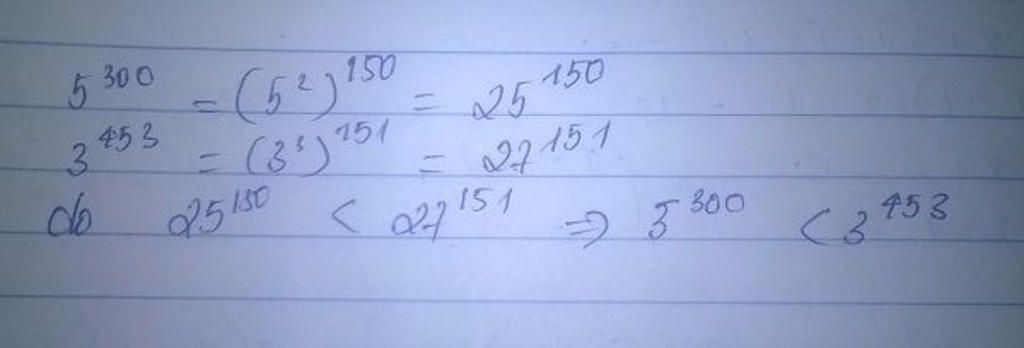 5³⁰⁰ = (5²)¹⁵⁰ = 25¹⁵⁰
3⁴⁵³ = (3³)¹⁵¹ = 27¹⁵¹
do 25¹⁵⁰ < 27¹⁵¹ ⇒ 5³⁰⁰ < 3⁴⁵³